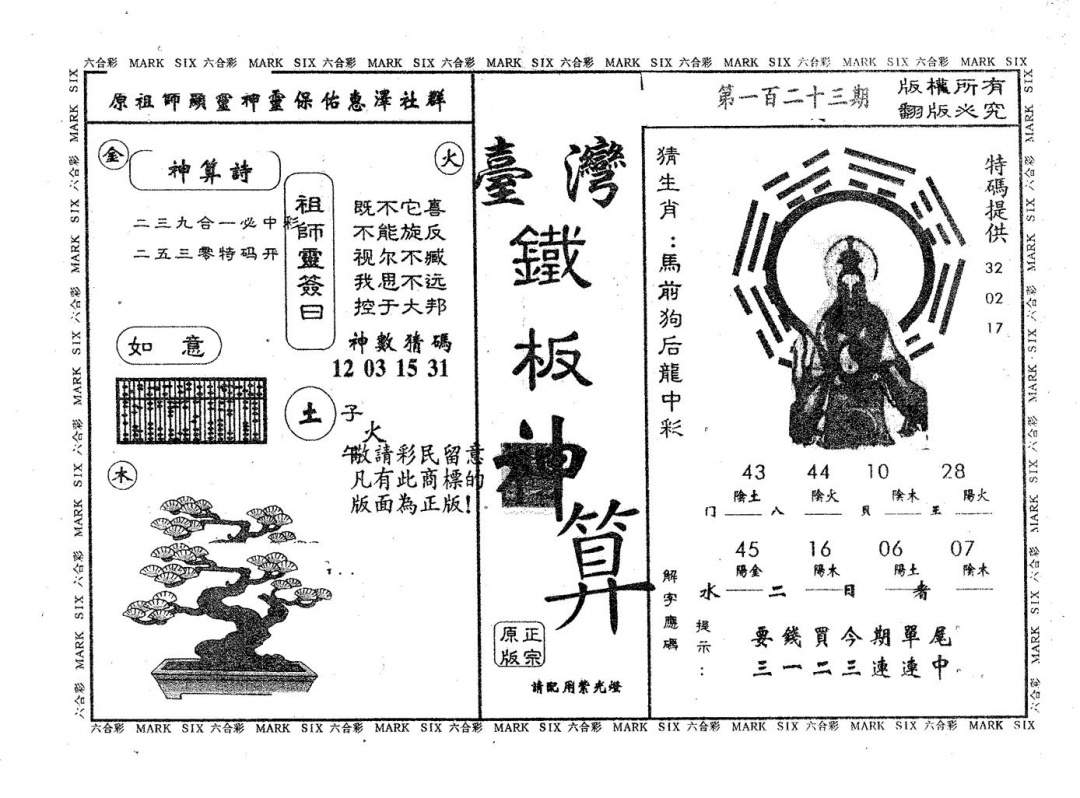 六合彩 MARK SIX 六合彩 MARK SIX 六合彩 MARK SIX 六合彩 MARK SIX 六合彩 MARK SIX 六合彩 MARK SIX 六合彩 MARK SIX 六合彩 MARK SIX
原祖師顯靈神靈保佑惠澤社群
金
神算詩
火
二三九合一必中彩
二五三零特码开
祖師靈簽曰
既不它喜
不能旋反
视尔不臧
我思不远
控于大邦
神數猜碼
12 03 15 31
如意
土
子
火
午
木
敬請彩民留意
凡有此商標的
版面為正版!
臺灣
鐵
板
神
算
正宗
原版
請配用紫光燈
第一百二十三期
版權所有
翻版必究
猜生肖:馬前狗后龍中彩
特碼提供
32
02
17
43 44 10 28
陰土 陰火 陰木 陽火
门 八 貝 王
45 16 06 07
陽金 陽木 陽土 陰木
水 二 日 者
解字應碼
提示:
要錢買今期單尾
三一二三連連中。
六合彩 MARK SIX 六合彩 MARK SIX 六合彩 MARK SIX 六合彩 MARK SIX 六合彩 MARK SIX 六合彩 MARK SIX 六合彩 MARK SIX 六合彩 MARK SIX